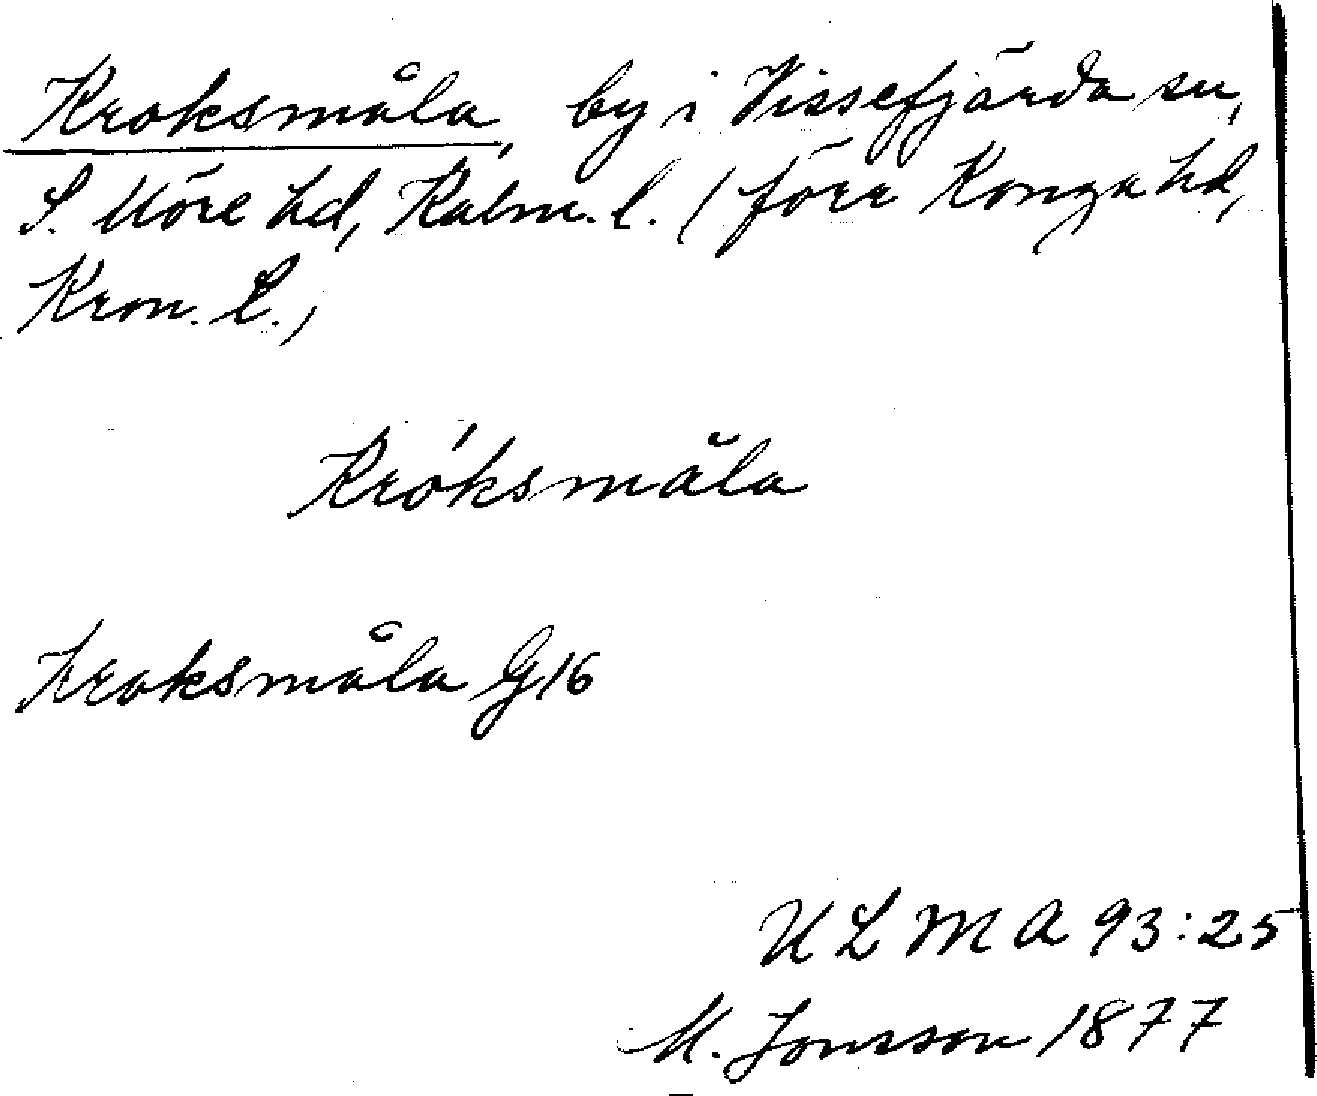 Kroksmåla, by i Vissefjärda sn,
S. Möre hd, Kalm. l. / förr Konga hd,
Kron. l./
Króksmåla
Kroksmåla G16
ULMA 93:25
M. Jonsson 1877